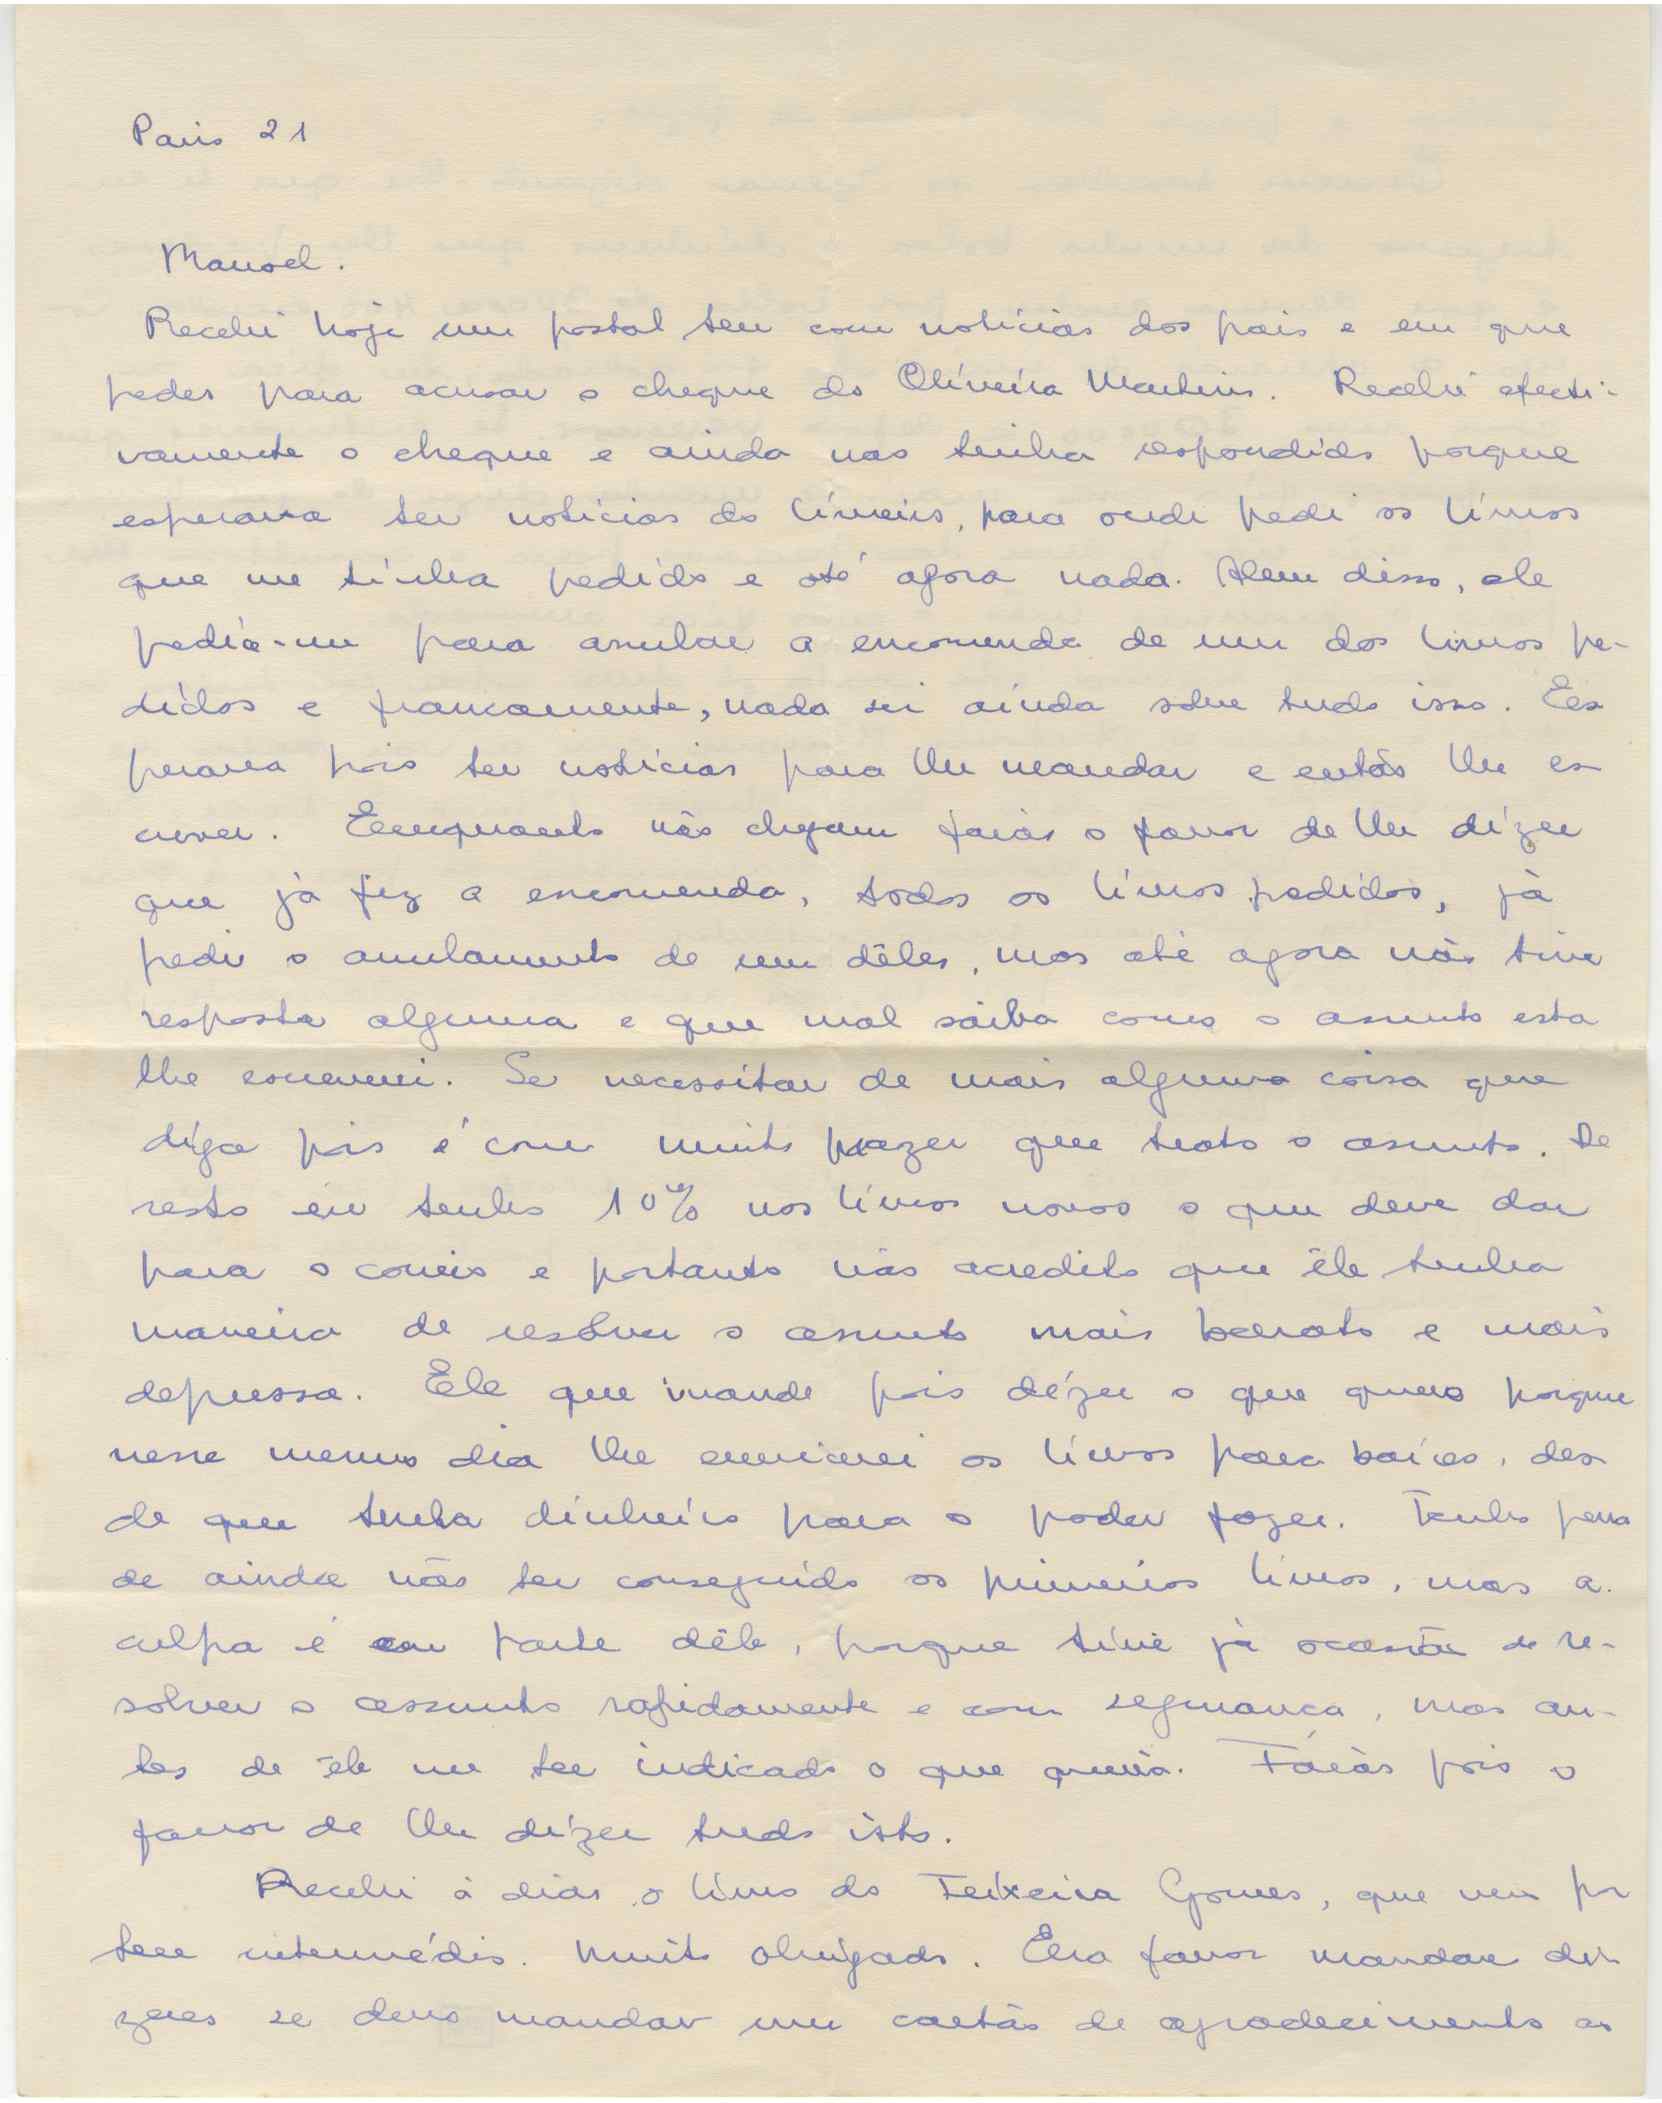 Paris 21
Manoel.
Recebi hoje um postal teu com noticias dos pais e em que
pedes para acusar o cheque do Oliveira Martins. Recebi efecti-
vamente o cheque e ainda nao tinha respondido porque
esperava ter noticias do livreiro, para onde pedi os livros
que me tinha pedido e até agora nada. Alem disso, ele
pedia-me para anular a encomenda de um dos livros pe-
didos e francamente, nada sei ainda sobre tudo isso. Es
perava pois ter noticias para lhe mandar e então lhe es-
crever. Emquanto não chegam farás o favor de lhe dizer
que já fiz a encomenda, todos os livros pedidos, já
pedi o anulamento de um dêles, mas até agora não tive
resposta alguma e que mal saiba como o assunto esta
lhe escreverei. Se necessitar de mais alguma coisa que
diga pois é com muito prazer que trato o assunto. De
resto eu tenho 10% nos livros novos o que deve dar
para o correio e portanto não acredito que êle tenha
maneira de resolver o assunto mais barato e mais
depressa. Ele que mande pois dizer o que quero porque
nesse mesmo dia lhe enviarei os livros para baixo, des
de que tenha dinheiro para o poder fazer. Tenho pena
de ainda não ter conseguido os primeiros livros, mas a
culpa é em parte dêle, porque tive já ocasião de re-
solver o assunto rapidamente e com segurança, mas an-
tes de êle me ter indicado o que queria. Farás pois o
favor de lhe dizer tudo isto.
Recebi à dias o livro do Teixeira Gomes, que veio por
teu intermédio. Muito obrigado. Era favor mandar di-
zeres se devo mandar um cartão de agradecimento ao